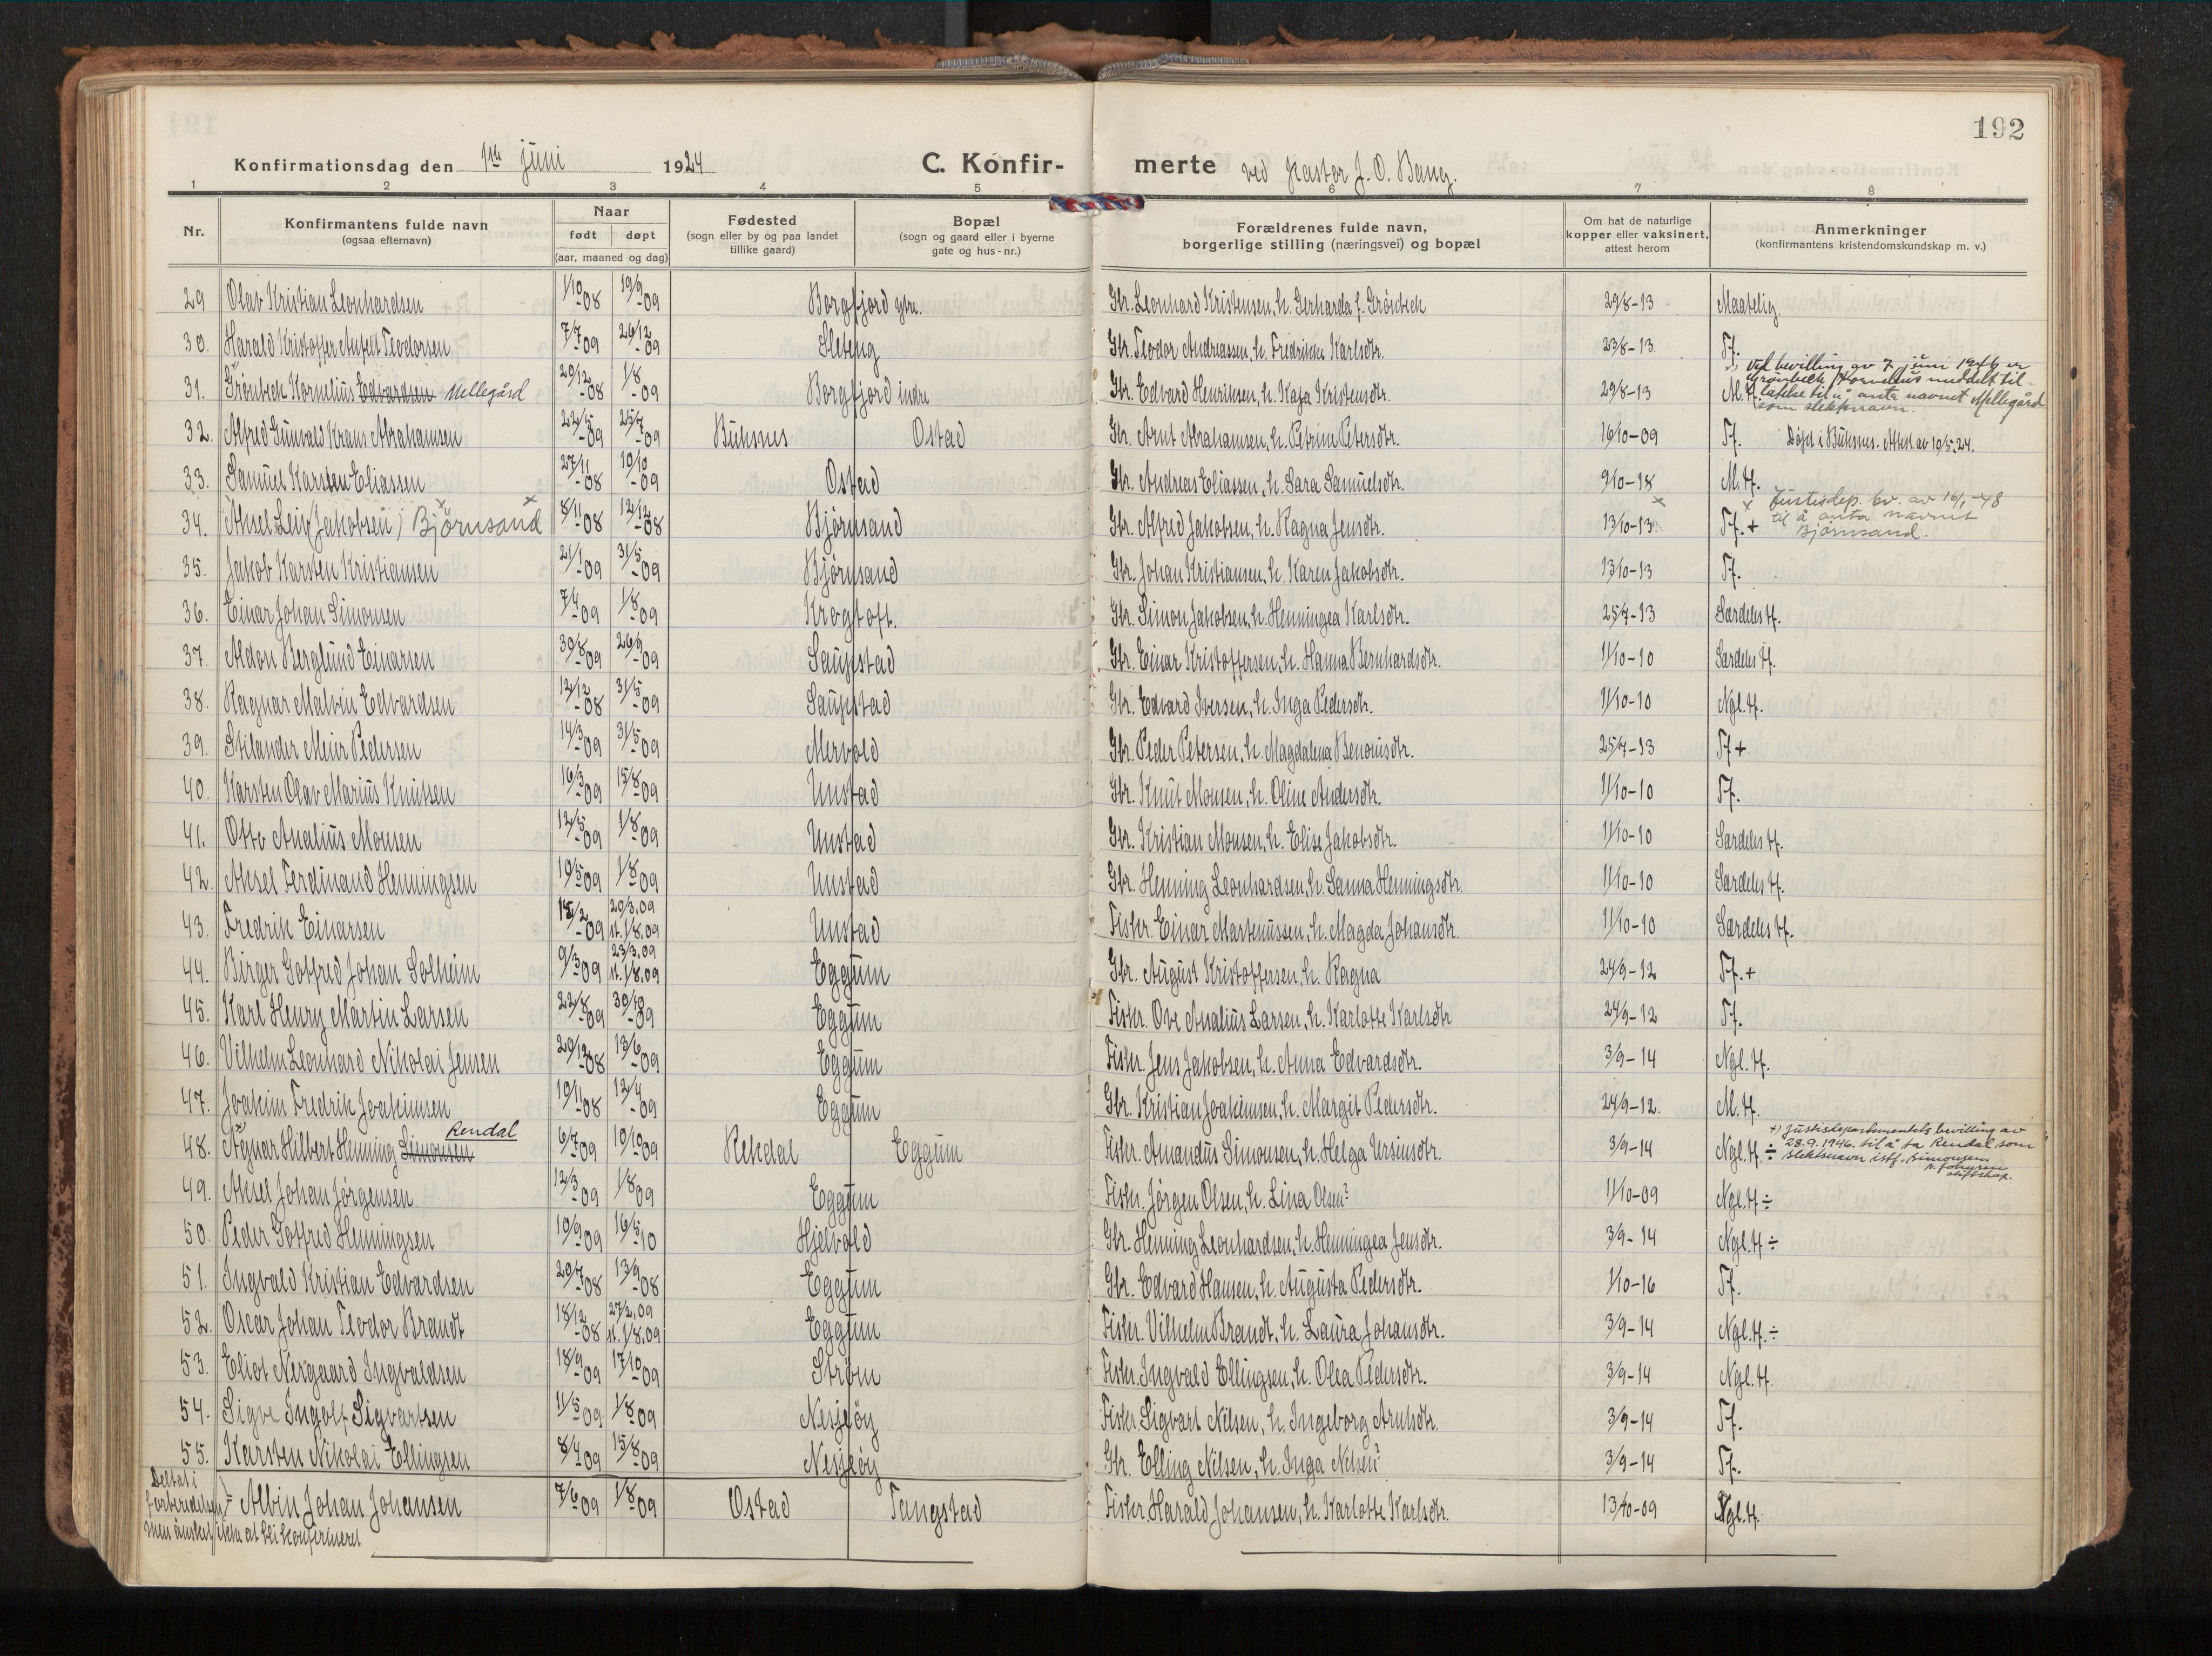 192
Konfirmationsdag den 1ste juni 1924 C. Konfirmerte ved Pastor J. O. Bang.
1 2 3 4 5 6 7 8
Nr. Konfirmantens fulde navn (ogsaa efternavn) Naar født døpt (aar, maaned og dag) Fødested (sogn eller by og paa landet tillike gaard) Bopæl (sogn og gaard eller i byerne gate og hus-nr.) Forældrenes fulde navn, borgerlige stilling (næringsvei) og bopæl Om hat de naturlige kopper eller vaksinert, attest herom Anmerkninger (konfirmantens kristendomskundskap m. v.)
29 Olav Kristian Leonhardsen 1/10-08 19/9-09 Borgfjord ytre. Gbr. Leonhard Kristensen, h. Gerharda f. Grönbech 29/8-13 Maadelig.
30. Harald Kristoffer Antell Teodorsen 7/7-09 26/12-09 Sleteng Gbr. Teodor Andreassen, h. Fredrikke Karlsdtr. 23/8-13 Tf.
31. Grönbech Kornelius Edvardsen Mellegård 20/12-08 1/8-09 Borgfjord indre Gbr. Edvard Henriksen, h. Kaja Kristensdtr. 29/8-13 M. H. Ved bevilling av 7 juni 1946 er Grönbech Kornelius meddelt tillatelse til å anta navnet Mellegård som slektsnavn.
32. Alfred Gunvald Krans Abrahamsen 22/5-09 25/7-09 Buksnes Ostad Gbr. Arnt Abrahamsen, h. Petrine Petersdtr. 16/10-09 Tf. Döpt i Buksnes. Attest av 10/5.24.
33. Samuel Karsten Eliassen 27/11-08 10/10-09 Ostad Gbr. Andreas Eliassen, h. Sara Samuelsdtr. 9/10-18 M. H.
34. Aksel Leif Jakobsen x / Björnsand x 8/11-08 12/12-08 Björnsand Gbr. Alfred Jakobsen, h. Ragna Jensdtr. 13/10-13 x Tf. + x Justisdep. bv. av 16/1-48 til å anta navnet Björnsand.
35. Jakob Karsten Kristiansen 21/1-09 31/5-09 Björnsand Gbr. Johan Kristiansen, h. Karen Jakobsdtr. 13/10-13 Tf.
36. Einar Johan Simonsen 7/4-09 1/8-09 Krogtoft. Gbr. Simon Jakobsen, h. Henningea Karlsdtr. 25/7-13 Særdeles H.
37. Aldon Berglund Einarsen 30/8-09 26/9-09 Saupstad Gbr. Einar Kristoffersen, h. Hanna Bernhardsdtr. 11/10-10 Særdeles H.
38. Ragnar Malvin Edvardsen 12/12-08 31/5-09 Saupstad Gbr. Edvard Iversen, h. Inga Pedersdtr. 11/10-10 Ngl. H.
39. Stilander Meier Pedersen 14/3-09 31/5-09 Mervold Gbr. Peder Petersen, h. Magdalena Benonisdtr. 25/7-13 Tf +
40. Karsten Olav Marius Knutsen 16/3-09 15/8-09 Unstad Gbr. Knut Monsen, h. Oline Andersdtr. 11/10-10 Tf.
41. Otto Analius Monsen 12/5-09 1/8-09 Unstad Gbr. Kristian Monsen, h. Elise Jakobsdtr. 11/10-10 Særdeles H.
42. Aksel Ferdinand Henningsen 19/5-09 1/8-09 Unstad Gbr. Henning Leonhardsen, h. Sanna Henningsdtr. 11/10-10 Særdeles H.
43. Fredrik Einarsen 15/2-09 20/3.09 st. 1/8.09 Unstad Fisker. Einar Martenussen, h. Magda Johansdtr. 11/10-10 Særdeles H.
44. Birger Gotfred Johan Solheim 9/3-09 23/3.09 st. 1/8.09 Eggum Gbr. August Kristoffersen, h. Ragna 24/9-12 Tf. +
45. Karl Henry Martin Larsen 22/8-09 30/10-09 Eggum Fisker. Ove Analius Larsen, h. Karlotte Karlsdtr 24/9-12 Tf.
46. Vilhelm Leonhard Nikolai Jensen 20/12-08 13/6-09 Eggum Fisker. Jens Jakobsen, h. Anna Edvardsdtr. 3/9-14 Ngl. H.
47. Joakim Fredrik Joakimsen 19/11-08 12/4-09 Eggum Gbr. Kristian Joakimsen, h. Margit Pedersdtr. 24/9-12. M. H.
48. Agnar Hilbert Henning Simonsen Rendal 6/7-09 10/10-09 Rekdal Eggum Fisker. Amandus Simonsen, h. Helga Ursinsdtr. 3/9-14 Ngl. H. ÷ +) Justisdepartementets bevilling av 28.9.1946. til å ta Rendal som slektsnavn istf. Simonsen
49. Aksel Johan Jörgensen 12/3-09 1/8-09 Eggum Fisker. Jörgen Olsen, h. Lina Olsen? 11/10-09 Ngl. H ÷
50. Peder Gotfred Henningsen 10/9-09 16/5-10 Hjelvold Gbr. Henning Leonhardsen, h. Henningea Jensdtr. 3/9-14 Ngl. H ÷
51. Ingvald Kristian Edvardsen 20/7-08 13/9-08 Eggum Gbr. Edvard Hansen, h. Augusta Pedersdtr. 1/10-16 Tf.
52. Oscar Johan Teodor Brandt 18/12-08 27/2.09 st. 1/8.09 Eggum Fisker. Vilhelm Brandt, h. Laura Johansdtr. 3/9-14 Ngl. H. ÷
53. Eliot Nergaard Ingvaldsen 18/9-09 17/10-09 Ström Fisker. Ingvald Ellingsen, h. Olea Pedersdtr. 3/9-14 Ngl. H.
54. Sigve Ingolf Sigvartsen 11/5-09 1/8-09 Nesjeöy Fisker Sigvart Nilsen, h. Ingeborg Arntsdtr. 3/9-14 Tf.
55. Karsten Nikolai Ellingsen 8/4-09 15/8-09 Nesjeöy Gbr. Elling Nilsen, h. Inga Nilsen? 3/9-14 Tf.
Deltat i forberedelsen, men önsket ikke at bli konfirmeret Albin Johan Johansen 7/6-09 1/8-09 Ostad Tangstad Fisker Harald Johansen, h. Karlotte Karlsdtr. 13/10-09 Ngl. H.